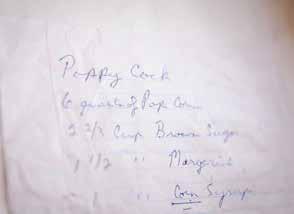 Poppy Cock
6 quarts of Pop Corn
2 2/3 Cup Brown Sugar
1 1/2 " Margerine
1 " Corn Syrup